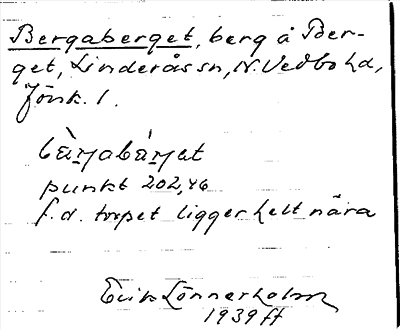 Bergaberget, berg å Ber-
get, Linderås sn, N. Vedbo hd,
Jönk. l.
bàrjabárjat
punkt 202,46
f.d. torpet ligger helt nära
Erik Lönnerholm
1939 ff